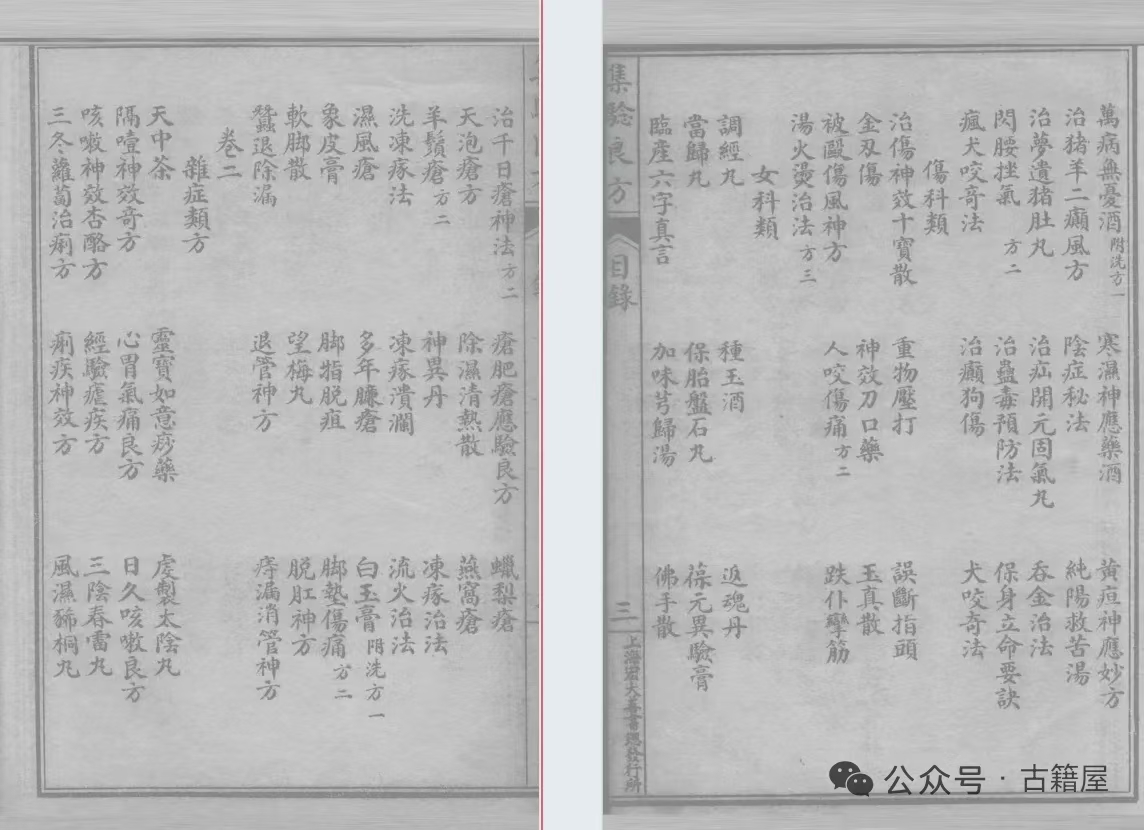 萬病無憂酒 附洗方一 寒濕神應藥酒 黃疸神應妙方
治猪羊二癲風方 陰症秘法 純陽救苦湯
治夢遺猪肚丸 治疝開元固氣丸 吞金治法
閃腰挫氣 方二 治蠱毒預防法 保身立命要訣
瘋犬咬奇法 治癲狗傷 犬咬奇法
傷科類
治傷神效十寶散 重物壓打 誤斷指頭
金刃傷 神效刀口藥 玉真散
被毆傷風神方 人咬傷痛 方二 跌仆孿筋
湯火燙治法 方三
女科類
調經丸 種玉酒 返魂丹
當歸丸 保胎盤石丸 葆元異驗膏
臨産六字真言 加味芎歸湯 佛手散
集驗良方
目錄
三
上海宏大善書總發行所
治千日瘡神法 方二 瘡肥瘡應驗良方 蠟梨瘡
天泡瘡方 除濕清熱散 燕窩瘡
羊鬚瘡 方二 神異丹 凍瘃治法
洗凍瘃法 凍瘃潰瀾 流火治法
濕風瘡 多年臁瘡 白玉膏 附洗方一
象皮膏 脚指脱疽 脚墊傷痛 方二
軟脚散 望梅丸 脱肛神方
蠶退除漏 退管神方 痔漏消管神方
卷二
雜症類方
天中茶 靈寶如意痧藥 虔製太陰丸
隔噎神效奇方 心胃氣痛良方 日久咳嗽良方
咳嗽神效杏酪方 經驗瘧疾方 三陰春雷丸
三冬蘿蔔治痢方 痢疾神效方 風濕豨桐丸
公众号 · 古籍屋